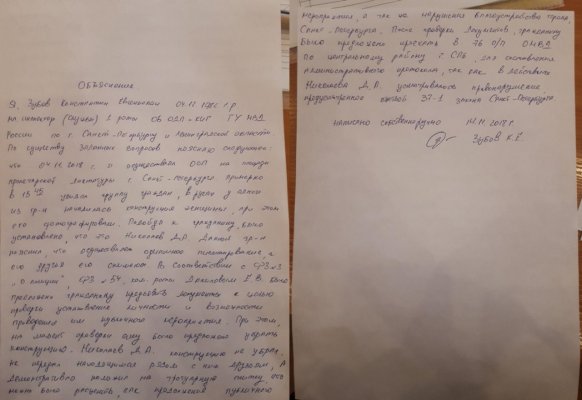 Объяснение
Я, Зубов Константин
инспектор 1 роты ОБ ОДЛ - КИГ ГУ МВД
России по г. Санкт-Петербургу и Ленинградской области
По существу заданных вопросов поясняю следующее:
что 04.11.2018 г. я осуществлял ООП на площади
Пролетарской диктатуры г. Санкт-Петербурга примерно
в 15 увидел группу граждан, в руках у одного
из гр-н находилась конструкция при этом
его фотографировали. Подойдя к гражданину, было
установлено, что это Николаев Д.А. Данный гр-н
пояснил, что осуществляет одиночное пикетирование, а
его друзья его снимают. В соответствии с ФЗ №3
"О полиции", ФЗ № 54, ком. роты Е.В. было
предложено гражданину предъявить документы с целью
проверки установления личности и возможности
проведения им публичного мероприятия. При этом,
на момент проверки ему было предложено убрать
конструкцию. Николаев Д.А. конструкцию не убрал,
не передал находящимся рядом с ним друзьям, а
демонстративно положил на тротуарную плитку, что
можно было расценить, как продолжение публичного
мероприятия, а так же нарушения благоустройства города
Санкт-Петербурга. После проверки документов, гражданину
было предложено проехать в 76 о/п ОМВД
по центральному району г. СПб, для составления
административного протокола, так как в действиях
Николаева Д.А. усматривалось правонарушение
предусмотренное статьей 37-1 закона Санкт-Петербурга.
Написано собственноручно 14.11.2018 г.
Зубов К.Е.